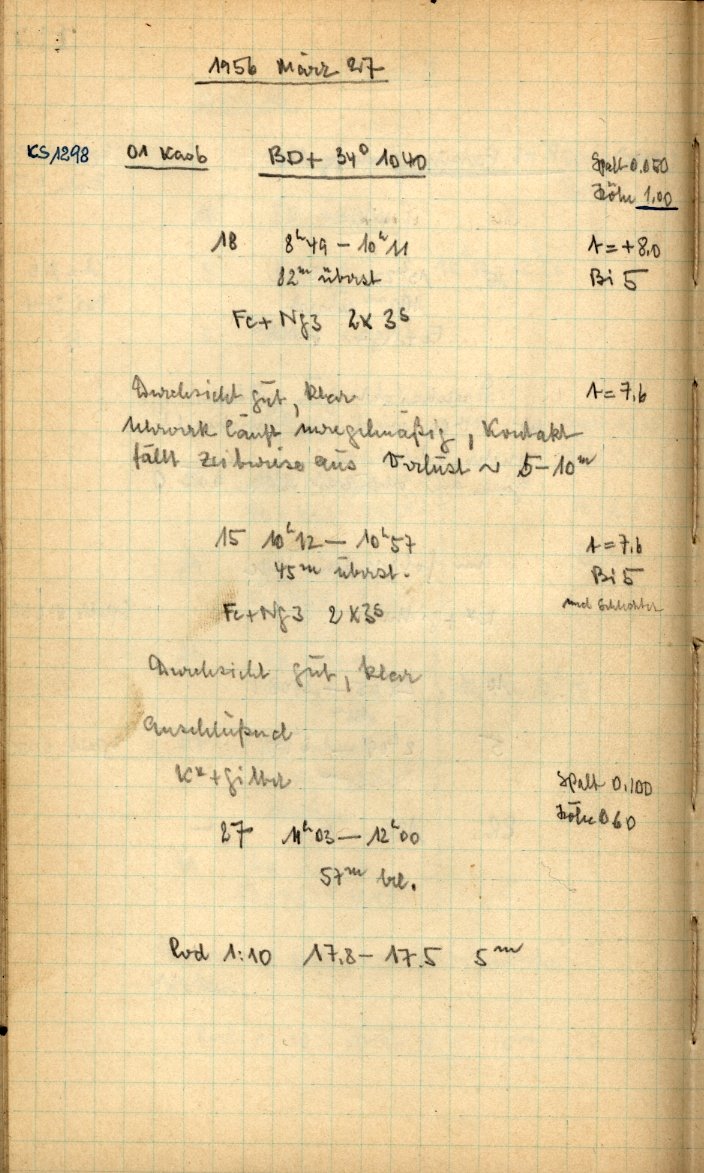 1956 März 27
KS 1298 01 Kasb BD+ 34° 1040
Spalt 0.050
Höhe 1,00
18 8ʰ49 – 10ʰ11 A = +8,0
82ᵐ überst Bi 5
Fe + Ng3 2x 3ˢ
Durchsicht gut, klar A = 7,6
Uhrwerk läuft unregelmäßig, Kontakt
fällt zeitweise aus Verlust ~ 5–10ᵐ
15 10ʰ12 – 10ʰ57 A = 7,6
45ᵐ überst. Bi 5
Fe + Ng3 2x3ˢ
Durchsicht gut, klar
Anschlußend
+ Gitter
Spalt 0,100
27 11ʰ03 – 12ʰ00 Höhe 0,60
57ᵐ bel.
Rod 1:10 17,8 – 17.5 5ᵐ